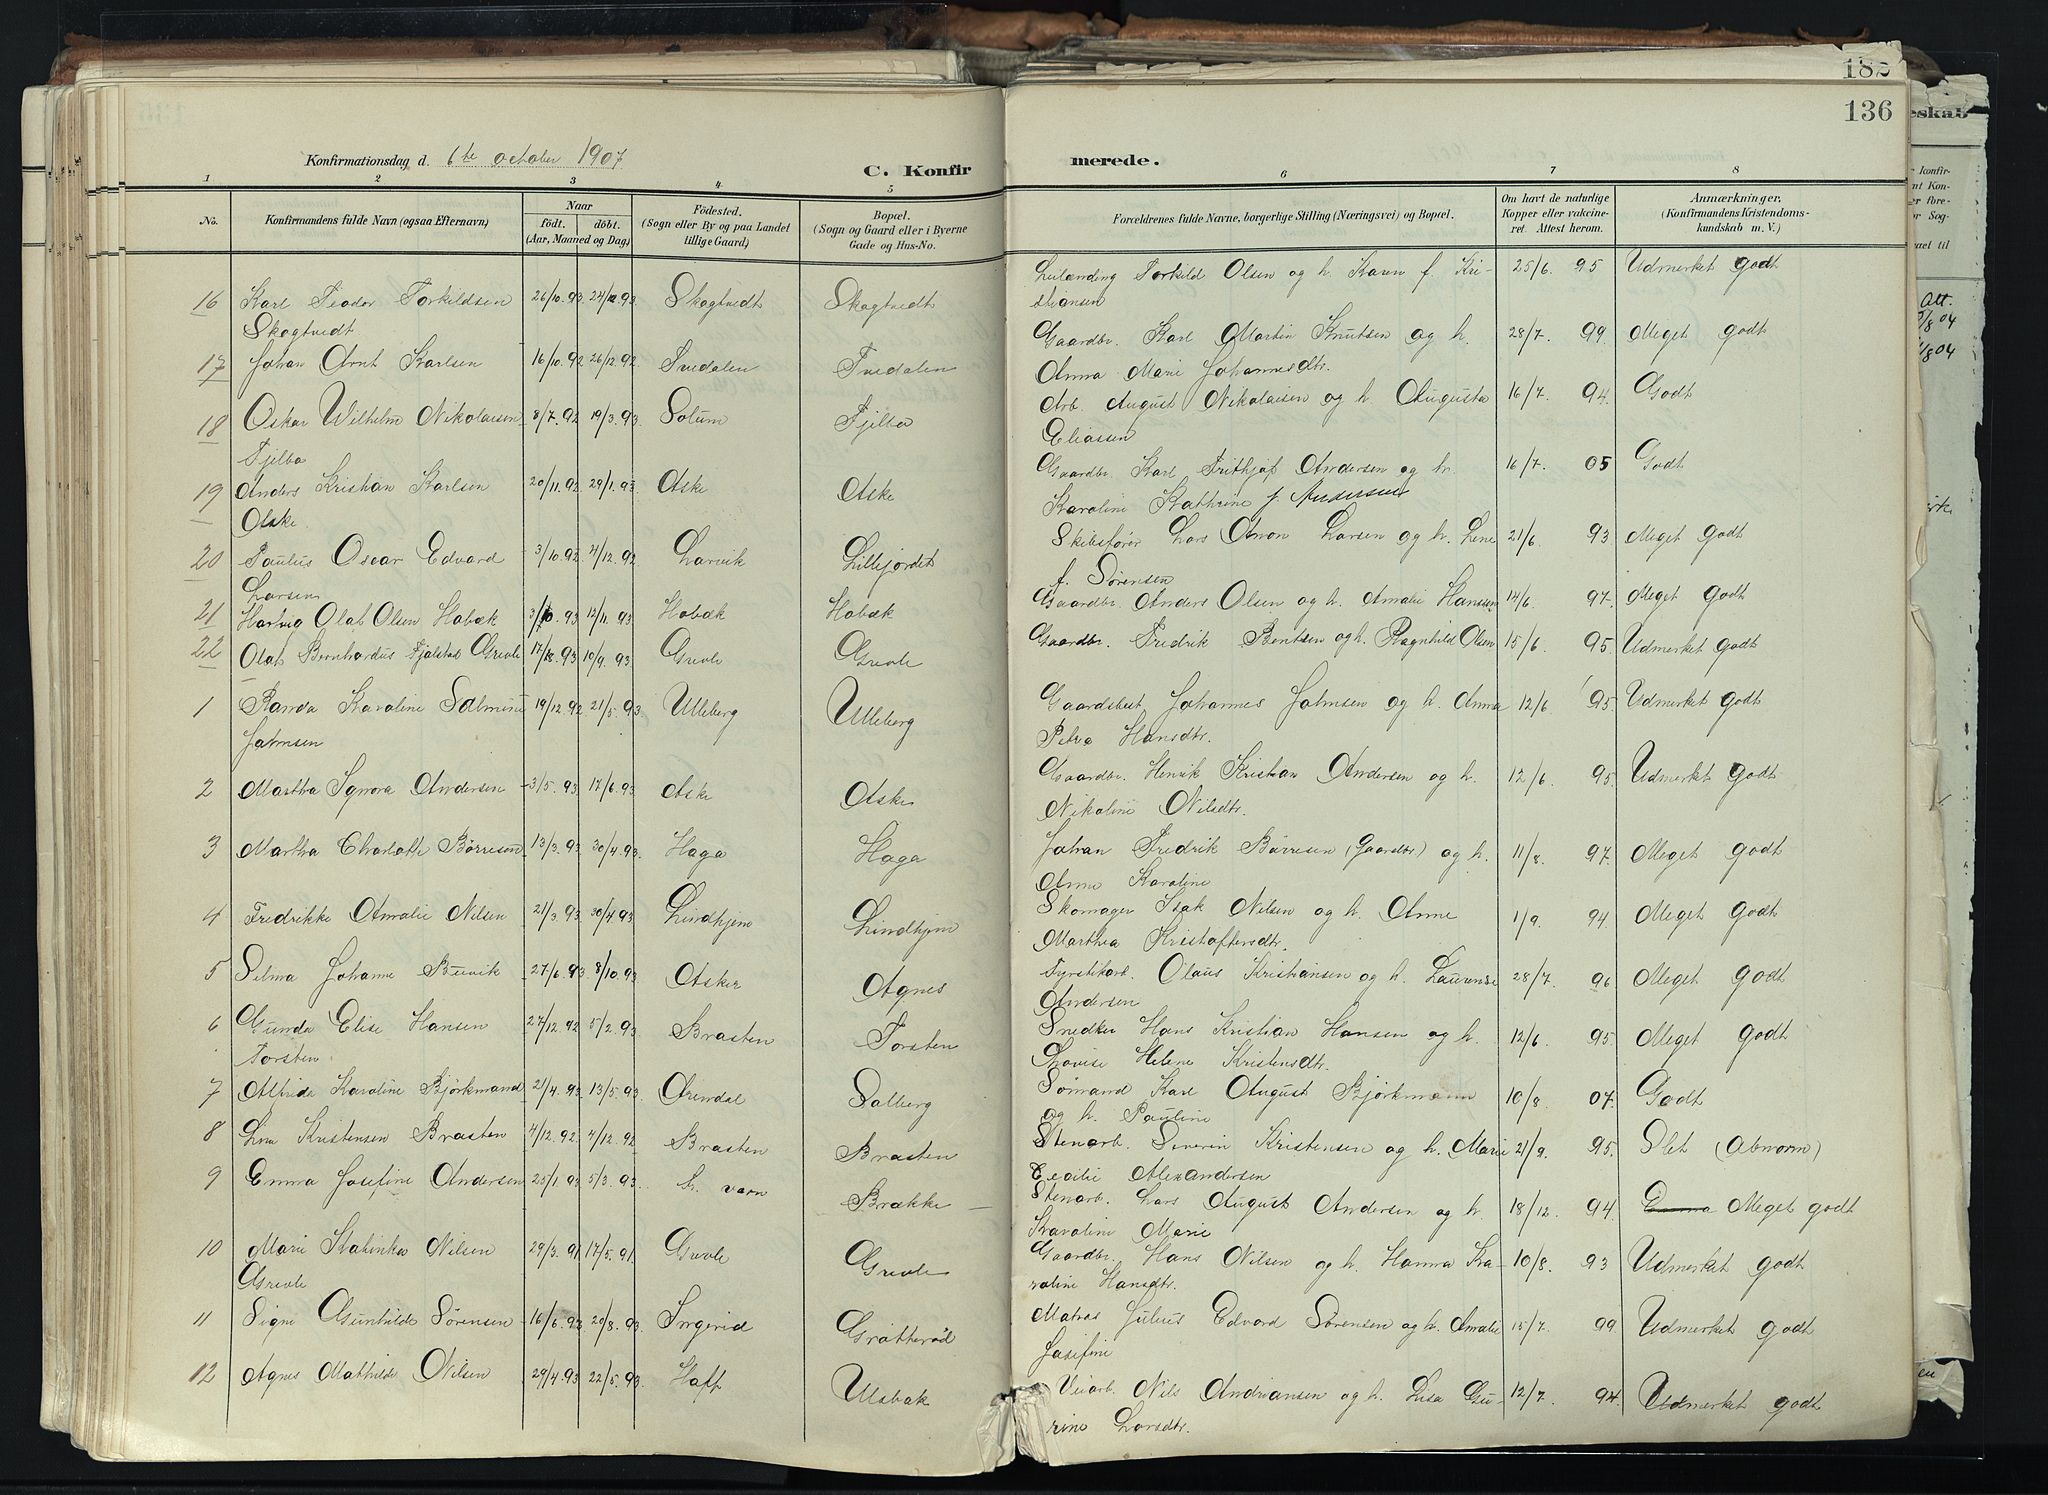 182
136
Konfirmationsdag d. 6te october 1907
C. Konfirmerede.
1 2 3 4 5 6 7 8
No. Konfirmandens fulde Navn (ogsaa Efternavn). Naar födt. döbt. (Aar, Maaned og Dag) Födested. (Sogn eller By og paa Landet tillige Gaard) Bopæl. (Sogn og Gaard eller i Byerne Gade og Hus-No. Forældrenes fulde Navne, borgerlige Stilling (Næringsvei) og Bopæl. Om havt de naturlige Kopper eller vakcineret. Attest herom. Anmærkninger. (Konfirmandens Kristendomskundskab m. V.)
16 Karl Teodor Torkildsen 26/10. 93 24/12. 93 Skogtvedt Skogtvedt Torkild Olsen og h. Karen f. Kri- 25/6. 95 Udmerket godt
Skogtvedt stiansen
17 Johan Arnt Karlsen 16/10. 92 26/12. 92 Tvedalen Tvedalen Gaardbr. Karl Martin Knutsen og h. 28/7. 99. Meget godt
Anna Marie Johannesdtr.
18 Oskar Wilhelm Nikolaisen 8/7. 92 19/3. 93 Solum Fjelbo Arb. August Nikolaisen og h. Augusta 16/7. 94. Godt
Fjelbo Eliassen
19 Anders Kristian Karlsen 20/11. 92 29/1. 93 Aske Aske Gaardbr. Karl Frithjof Andersen og h. 16/7. 05 Godt
Aske Karoline Kathrine f. Andersen
20 Paulus Oscar Edvard 3/10. 92 4/12. 92 Larvik Lillejordet Skibsfører Lars Anon Larsen og h. Lene 21/6. 93. Meget godt
Larsen f. Sørensen
21 Hartvig Olaf Olsen Habæk 3/10. 93 12/11. 93 Habæk Habæk Gaardbr. Anders Olsen og h. Amalie Hansen 14/6. 97. Meget godt
22 Olaf Bernhardus Fjelstad Grevle 17/8. 93 10/9. 93. Grevle Grevle Gaardbr. Fredrik Bentsen og h. Ragnhild Olsen 15/6. 95. Udmerket godt
1 Randa Karoline Salmine 19/12. 92 21/5. 93 Ulleberg Ulleberg Gaardsbest. Johannes Johnsen og h. Anna 12/6. 95. Udmerket godt
Johnsen Petra Hansdtr.
2 Martha Signora Andersen 3/5. 93. 17/6. 93 Aske Aske Gaardbr. Henrik Kristian Andersen og h. 12/6. 95. Udmerket godt
Nikoline Nilsdtr.
3 Martha Charlotte Börresen 13/3. 93 30/4. 93. Haga Haga Johan Fredrik Börresen (Gaardbr) og h. 11/8. 97. Meget godt
Anne Karoline
4 Fredrikke Amalie Nilsen 21/3. 93 30/4. 93 Lindhjem Lindhjem Skomager Isak Nilsen og h. Anne 1/9. 94. Meget godt
Marthea Kristoffersdtr.
5 Selma Johanne Buvik 27/6. 93 8/10. 93 Asker Agnes Fyrstikarb. Olaus Kristiansen og h. Laurense 28/7. 96 Meget godt
Andersen
6 Gunda Elise Hansen 27/12. 92 5/2. 93 Brasten Torsten Snedker Hans Kristian Hansen og h. 12/6 95. Meget godt
Torsten Lovise Helene Kristensdtr.
7 Alfrida Karoline Björkmand 21/4. 93 13/5. 93 Arendal Solberg Sömand Karl August Björkmann 10/8. 07. Godt
og h. Pauline
8 Lina Kristensen Brasten 4/12. 92. 4/12. 92 Brasten Brasten Stenarb. Severin Kristensen og h. Marie 21/9. 95. Slet (Abnorm)
Cecilie Alexandersen
9 Emma Josefine Andersen 25/1. 93 5/3. 93. Brække Stenarb. Lars August Andersen og h. 18/12. 94. Meget godt
Karoline Marie
10 Marie Katinka Nilsen 29/3. 91 17/5. 91. Grevle Grevle Gaardbr. Hans Nilsen og h. Hanna Ka- 10/8. 93 Udmerket godt
Grevle roline Hansdtr.
11 Signe Gunhilde Sörensen 16/6. 93 20/8. 93 Ingerid Gratteröd Matros Julius Edvard Sörensen og h. Amalie 15/7. 99. Udmerket godt
Josefine
12 Agnes Mathilde Nilsen 29/4. 93 22/5. 93. Haft Ulsbak Veiarb. Nils Andriansen og h. Lisa Gu- 12/7. 94. Udmerket godt
rine Larsdtr.